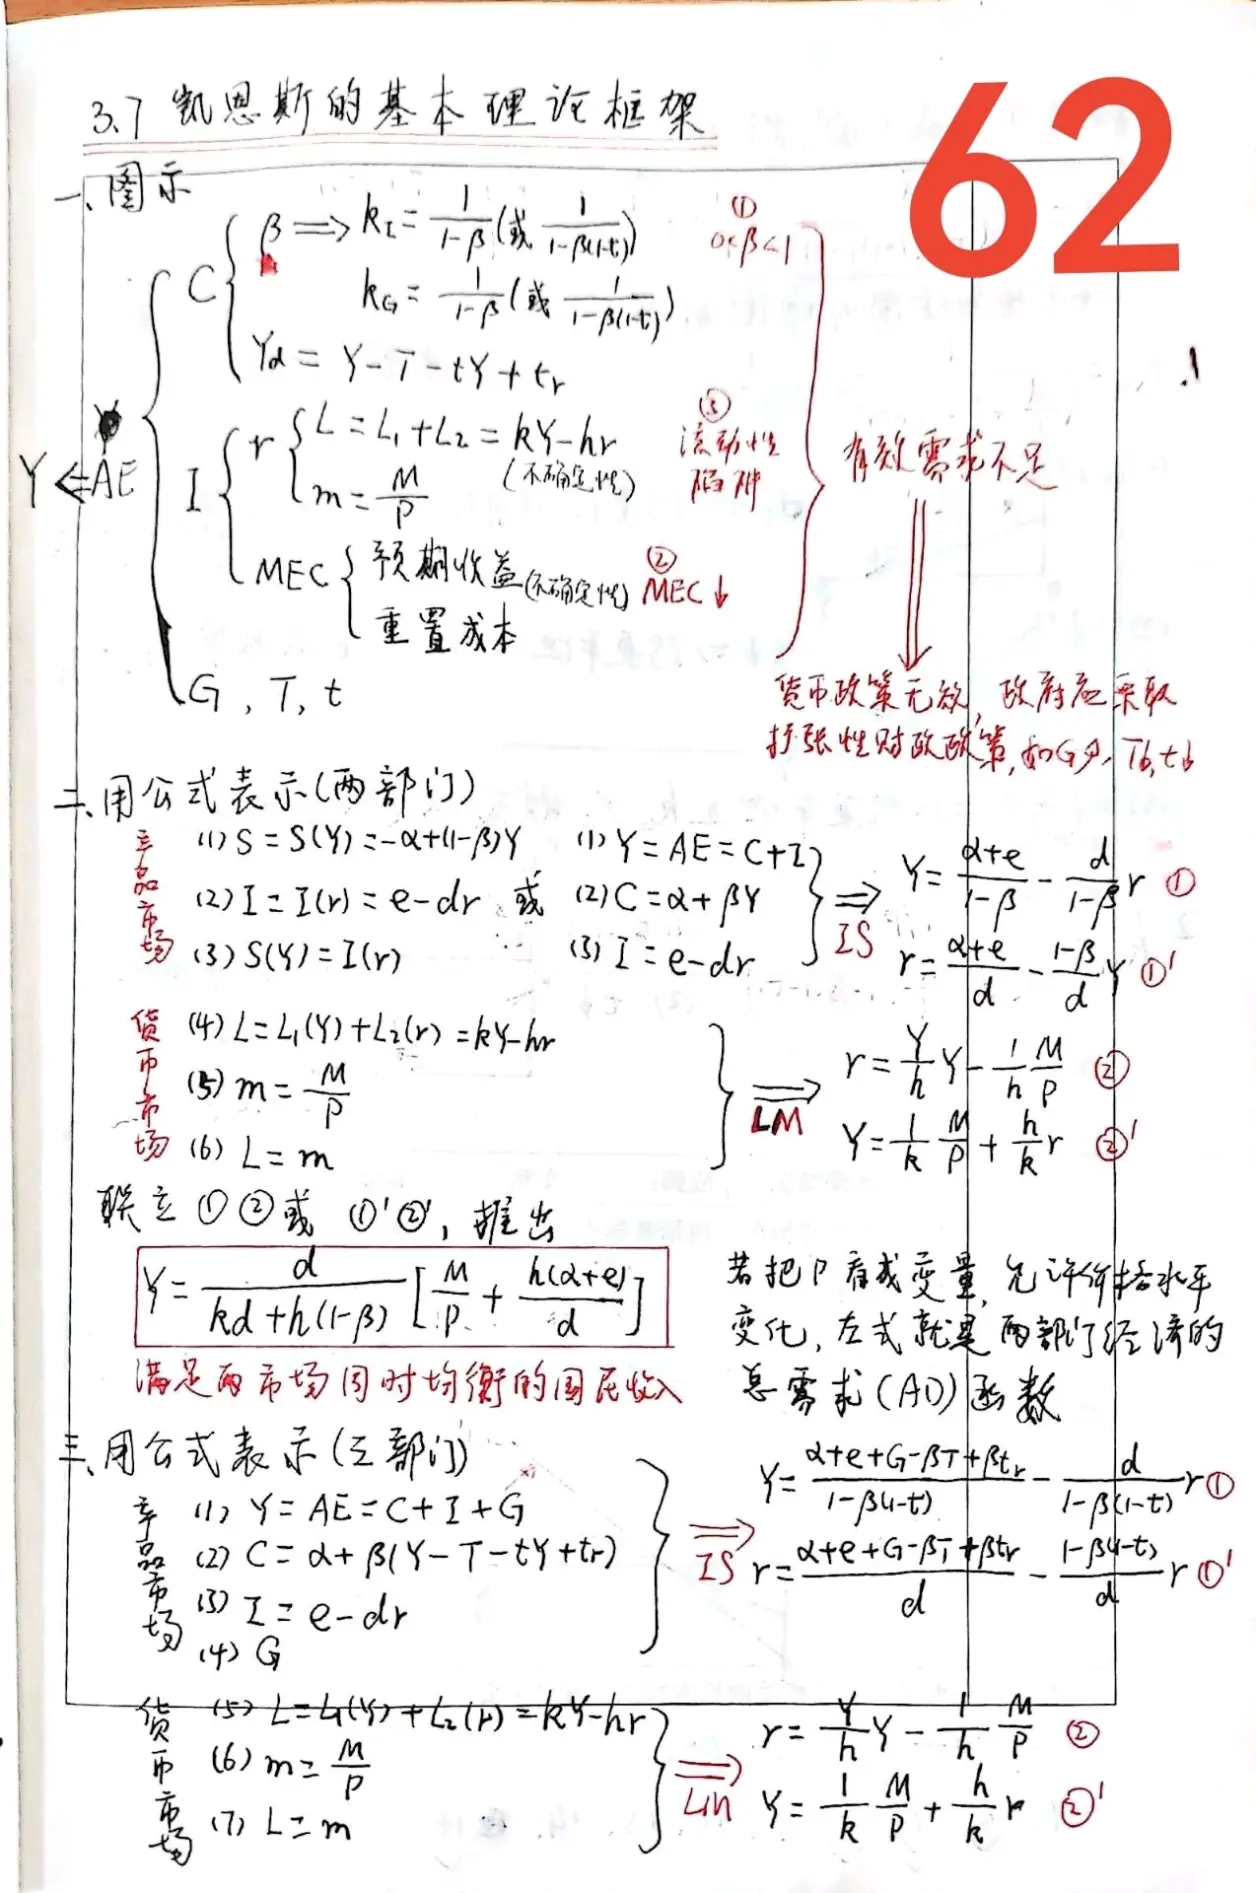 62
3.7 凯恩斯的基本理论框架
一、图示
Y ⇐ AE
C
β ⟹ k_I = 1/(1-β) (或 1/(1-β(1-t)))
k_G = 1/(1-β) (或 1/(1-β(1-t)))
Yd = Y - T - tY + tr
① 0<β<1
I
r
L = L₁ + L₂ = kY - hr
(不确定性)
m = M/P
③ 流动性
陷阱
MEC
预期收益(不确定性)
重置成本
② MEC↓
G, T, t
有效需求不足
货币政策无效, 政府应采取
扩张性财政政策, 如G↑, T↓, t↓
二、用公式表示(两部门)
产品市场
(1) S = S(Y) = -α+(1-β)Y
(2) I = I(r) = e-dr 或
(3) S(Y) = I(r)
(1) Y = AE = C+I
(2) C = α+βY
(3) I = e-dr
⟹ IS
Y = (α+e)/(1-β) - d/(1-β) r ①
r = (α+e)/d - (1-β)/d Y ①'
货币市场
(4) L = L₁(Y)+L₂(r) = kY-hr
(5) m = M/P
(6) L = m
⟹ LM
r = Y/h Y - 1/h M/P ②
Y = 1/k M/P + h/k r ②'
联立①②或 ①'②', 推出
Y = d/(kd+h(1-β)) [M/P + h(α+e)/d]
满足两市场同时均衡的国民收入
若把P看成变量, 允许价格水平
变化, 左式就是两部门经济的
总需求(AD)函数
三、用公式表示(三部门)
产品市场
(1) Y = AE = C+I+G
(2) C = α+β(Y-T-tY+tr)
(3) I = e-dr
(4) G
⟹ IS
Y = (α+e+G-βT+βtr)/(1-β(1-t)) - d/(1-β(1-t)) r ①
r = (α+e+G-βT+βtr)/d - (1-β(1-t))/d r ①'
货币市场
(5) L = L₁(Y)+L₂(r) = kY-hr
(6) m = M/P
(7) L = m
⟹ LM
r = Y/h Y - 1/h M/P ②
Y = 1/k M/P + h/k r ②'